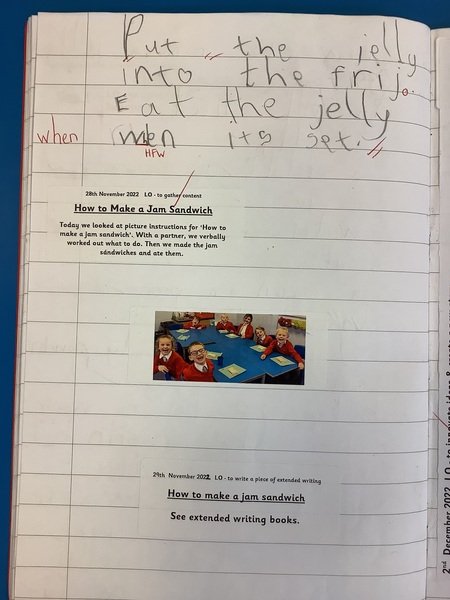 Put the jelly
into the frij.
Eat the jelly
when wen its set.
HFW
28th November 2022 LO - to gather content
How to Make a Jam Sandwich
Today we looked at picture instructions for 'How
to make a jam sandwich'. With a partner, we verbally
worked out what to do. Then we made the jam
sandwiches and ate them.
29th November 2022 LO - to write a piece of extended writing
How to make a jam sandwich
See extended writing books.
2nd December 2022 LO - to innovate ideas